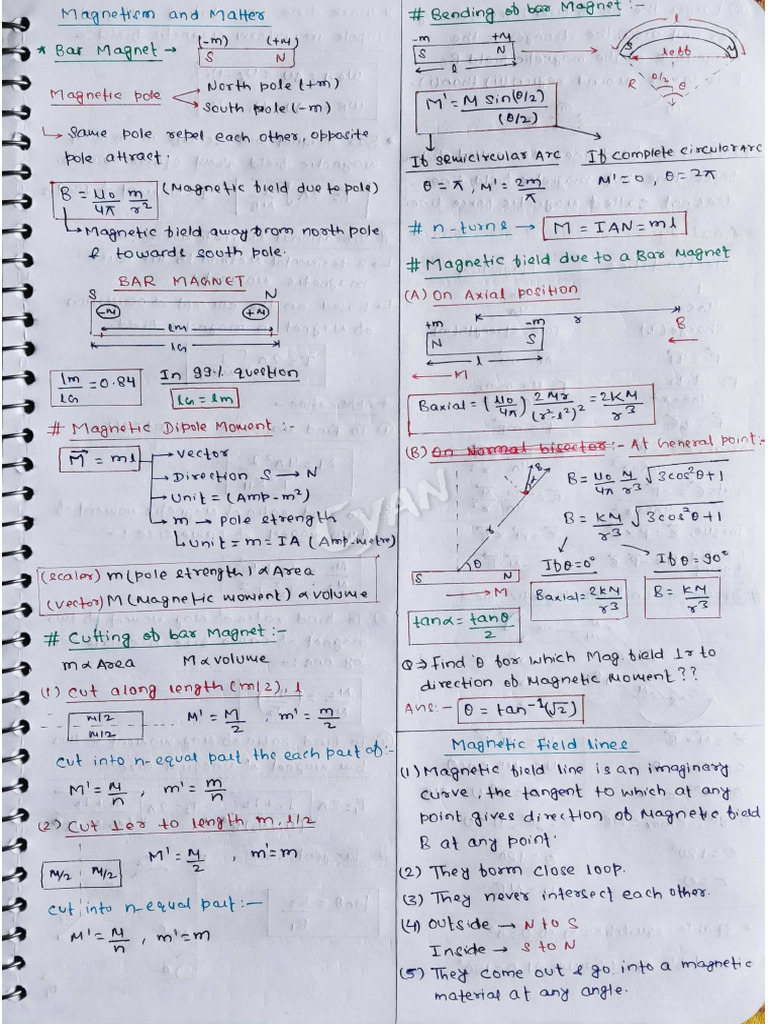 Magnetism and Matter
* Bar Magnet →
(-m) (+m)
S N
Magnetic pole
North pole (+m)
South pole (-m)
↳ Same pole repel each other, opposite
pole attract.
B = μ0/4π m/r² (Magnetic field due to pole)
↳ Magnetic field away from north pole
& towards south pole.
BAR MAGNET
S N
-M +M
lm
lG
lm/lG = 0.84
In 99% question
lG = lm
# Magnetic Dipole Moment :-
M⃗ = ml → vector
→ Direction S → N
→ Unit = (Amp-m²)
→ m → pole strength
↳ Unit = m = IA (Amp-metre)
(scaler) m (pole strength) α Area
(vector) M (Magnetic moment) α volume
# Cutting of bar Magnet :-
m α Area M α volume
(1) Cut along length (m/2), l
m/2
m/2
M' = M/2 , m' = m/2
Cut into n-equal part, the each part of :-
M' = M/n , m' = m/n
(2) Cut ⊥er to length m, l/2
M/2 M/2
M' = M/2 , m' = m
Cut into n-equal part :-
M' = M/n , m' = m
# Bending of bar Magnet :-
-m +M
S N
l
l
S N
R θ/2 θ
M' = M sin(θ/2)/(θ/2)
If semicircular Arc If complete circular Arc
θ = π, M' = 2m/π M' = 0, θ = 2π
# n-turns → M = IAN = ml
# Magnetic field due to a Bar Magnet
(A) On Axial position
r
+m -m B
N S
l
M
Baxial = (μ0/4π) 2Mr/(r²-l²)² = 2KM/r³
(B) On Normal bisector :- At General point :-
B
r
θ
S N
→ M
B = μ0/4π M/r³ √3cos²θ+1
B = KM/r³ √3cos²θ+1
If θ = 0° If θ = 90°
Baxial = 2KM/r³ B = KM/r³
tanα = tanθ/2
Q → Find θ for which Mag. field ⊥r to
direction of Magnetic Moment ??
Ans :- θ = tan⁻¹(√2)
Magnetic Field lines
(1) Magnetic field line is an imaginary
curve, the tangent to which at any
point gives direction of Magnetic field
B at any point.
(2) They form close loop.
(3) They never intersect each other.
(4) Outside → N to S
Inside → S to N
(5) They come out & go into a magnetic
material at any angle.